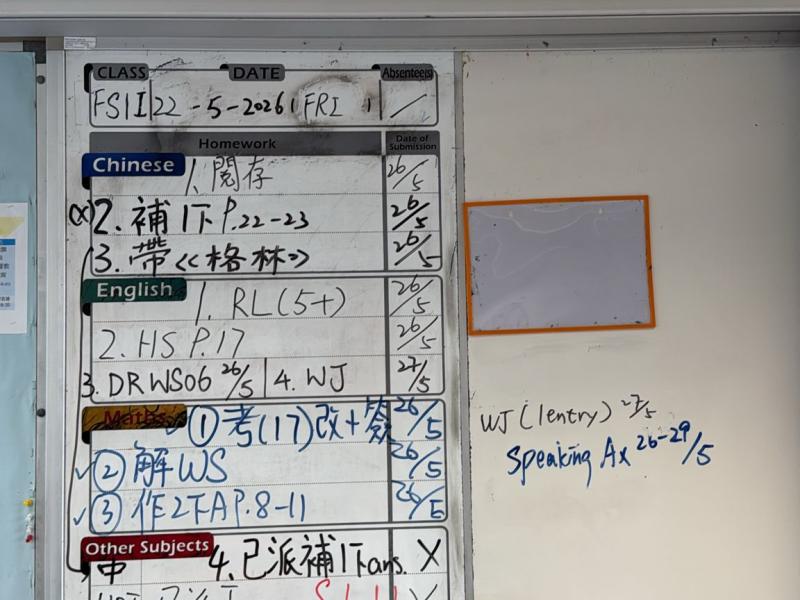 CLASS DATE Absentee(s)
FS1I 22-5-2026 FRI /
Homework Date of Submission
Chinese 1. 閱存 26/5
(x) 2. 補1下 P.22-23 26/5
3. 帶《格林》 26/5
English 1. RL(5+) 26/5
2. HS P.17 26/5
3. DRWS06 26/5 | 4. WJ 27/5
Maths ✓ ① 考(17)改+簽 26/5
✓ ② 解WS 26/5
✓ ③ 作2下A P.8-11 26/5
Other Subjects
中 4. 已派補1下ans. X
WJ (1entry) 27/5
Speaking Ax 26-29/5